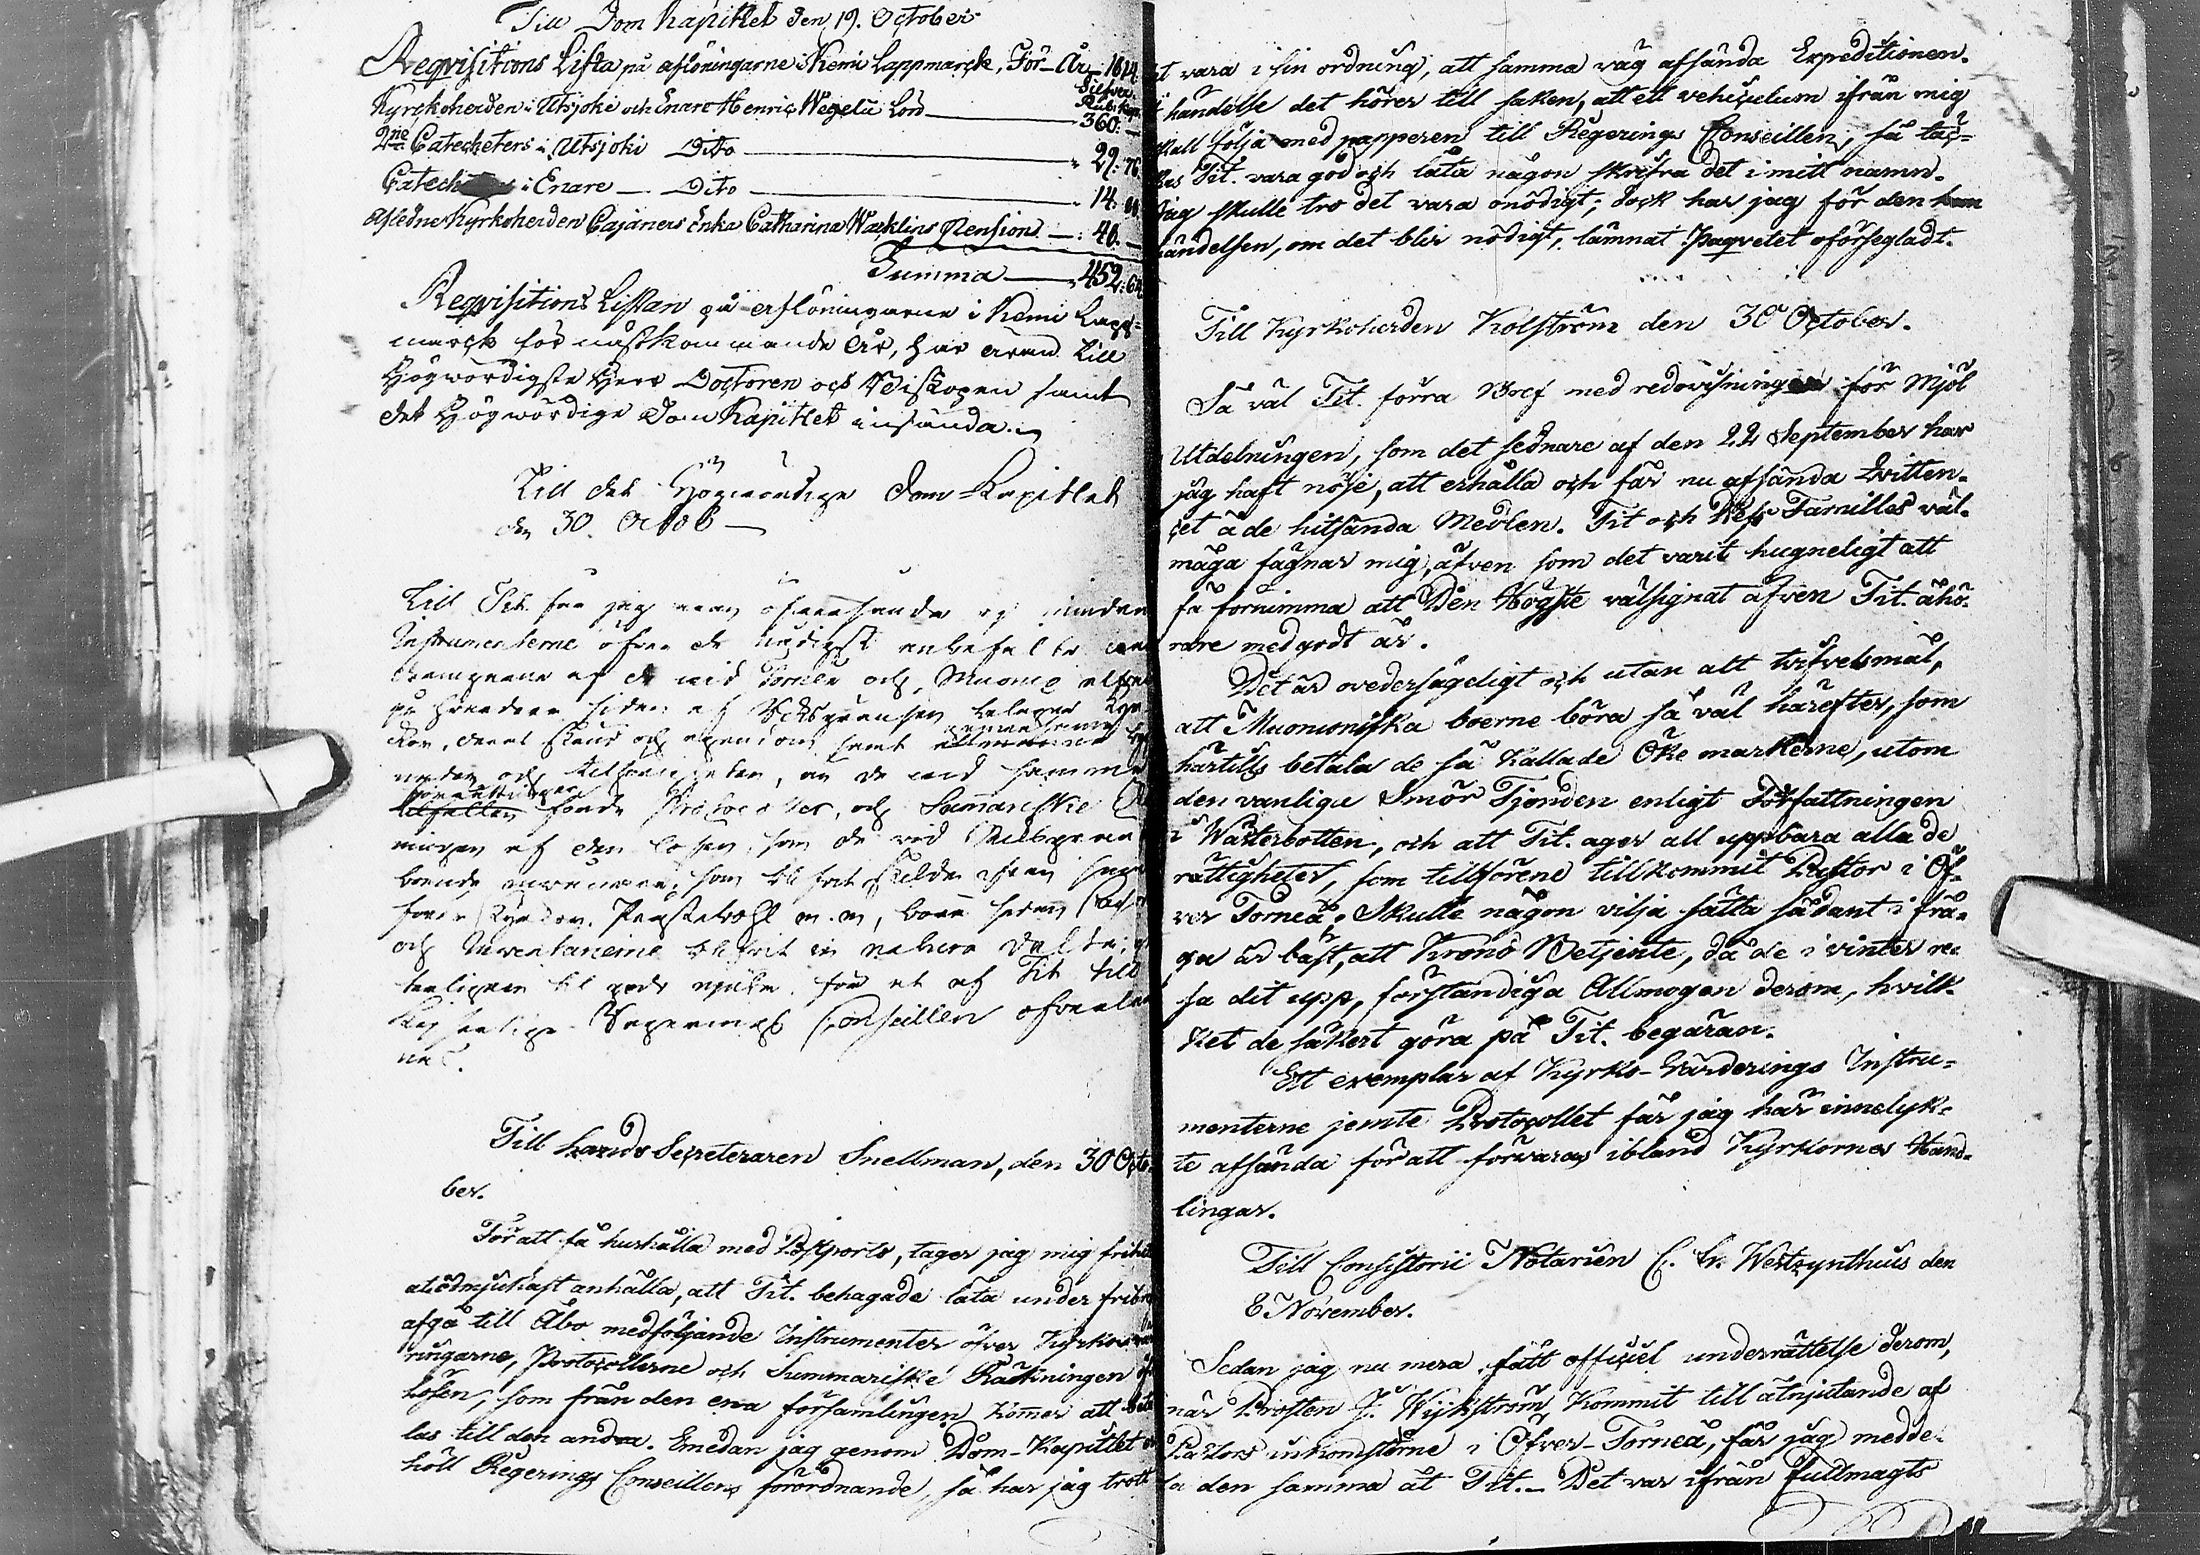 Till Dom Kapitlet den 19. October
Reqvisitions Lista på aflöningarne i Kemi Lappmarck, För År 1814.
Silfver
Rub. Kop.
Kyrckoherden i Utsjoki och Enare Henric Wegelii Lön 360: —
2ne Catecheters i Utsjoki Dito 29: 76
i Enare — Dito 14:
Afledne Kyrkoherden Cajaners Enka Catharina Wacklins Pension — 48. —
Summa — 452: 64
Reqvisitions Listan på aflöningarne i Kemi Lapp-
marck för nästkommande År, har äran till
Högwördigste Herr Doctoren och Biskopen samt
det Högwördige Dom Kapitlet insända.
Till det Högwördige Dom-Kapitlet
den 30. Octob —
Till Tit. får jag äran öfversända
Instrumenterne öfver de nådigst anbefalte
af de wid Torneå och Muonio elfver
på sidan af Riksgränsen belägne Kyr-
kor, deras skrud och egendom samt
och de wid samma
förrättningar förde Protocoller, och Summariske
af den lösen, som de wid Riksgränsen
boende som blifvit skilde ifrån
Kyrckor, Prästebohl m. m, böra
och Inventarierne blifvit in natura
till godo njuta, för at af Tit till
Kejserlige Regerings Conseillen öfverlem-
nas.
Till Lands Secreteraren Snellman, den 30 Octo-
ber.
För att få hushålla med Postporto, tager jag mig
ödmjukast anhålla, att Tit. behagade låta under fribref
afgå till Åbo medföljande Instrumenter öfver Kyrko
ringarne, Protocollerne och Summariske Räckningen
lösen, som från den ena församlingen kommer att beta-
las till den andra. Emedan jag genom Dom-Kapitlet
höll Regerings Conseillens förordnande, så har jag trott
det vara i sin ordning, att samma väg afsända Expeditionen.
I händelse det hörer till saken, att ett vehiculum ifrån mig
skall följa med papperen till Regerings Conseillen, så täc-
kes Tit. vara god och låta någon skrifva det i mitt namn.
Jag skulle tro det vara onödigt; dock har jag för den
händelsen, om det blir nödigt, lämnat Paqvetet oförsegladt.
Till Kyrkoherden Kolström den 30 October.
Så väl Tit. förra Bref med redovisningen för Mjöl
Utdelningen, som det sednare af den 22 September har
jag haft nöje, att erhålla och får nu afsända Qvitten-
cet å de hitsända Medlen. Tit och Dess Familles väl-
måga fägnar mig, äfven som det varit hugneligt att
få förnimma att Den Högste välsignat äfven Tit. åhö-
rare med godt år.
Det är ovedersägeligt och utan att tvifvelsmål,
att Muonioniska boerne böra så väl härefter, som
härtills betala de så kallade Öke markerne, utom
den vanliga Smör Tjonden enligt Författningen
i Wästerbotten, och att Tit. äger all uppbära alla de
rättigheter, som tillförene tillkommit Pastor i Öf-
ver Torneå. Skulle någon vilja sätta sådant i frå-
ga är bäst, att Krono Betjente, då de i vinter re-
sa dit upp, förständiga Allmogen derom, hvilk-
ket de säkert göra på Tit. begäran.
Ett exemplar af Kyrko-Värderings Instru-
menterne jemte Protocollet får jag här innelyk-
te afsända för att förvaras ibland Kyrkornes Hand-
lingar.
Till Consistorii Notarien C. Fr. Westzynthius den
8 November.
Sedan jag nu mera fått officiel underrättelse derom,
när Prosten J. Wijkström kommit till åtnjutande af
Pastors inkomsterne i Öfver-Torneå, får jag medde-
la den samma åt Tit. — Det var ifrån Fullmagts